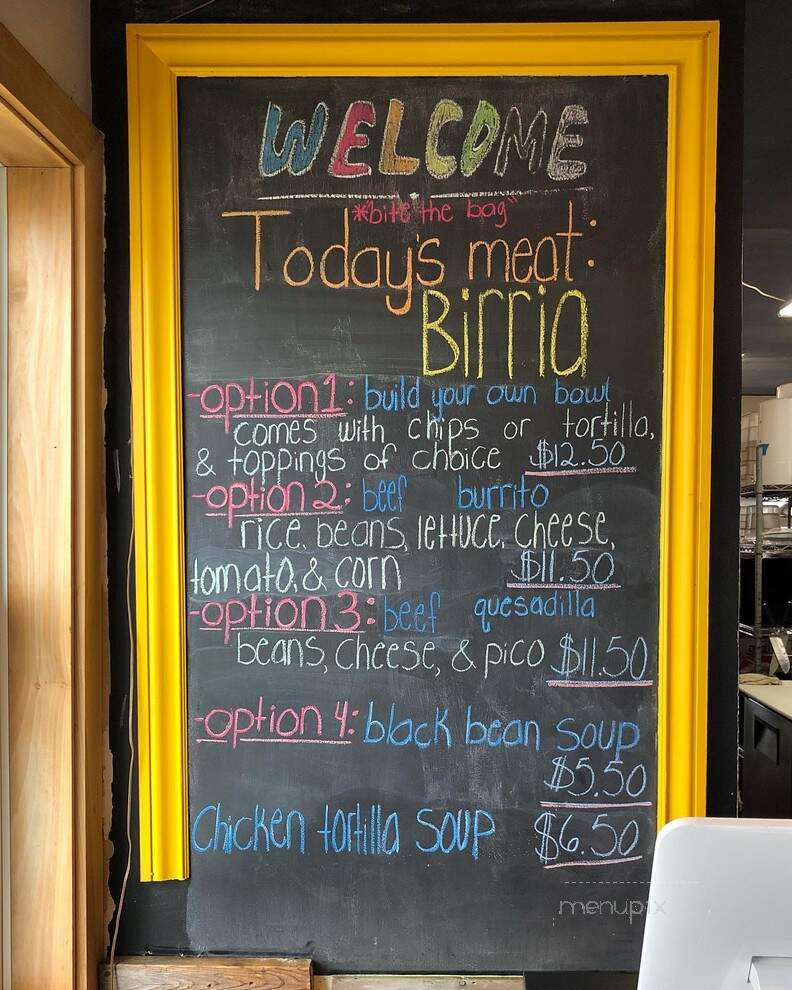 WELCOME
*"bite the bag"
Today's meat:
Birria
-option 1: build your own bowl
comes with chips or tortilla,
& toppings of choice $12.50
-option 2: beef burrito
rice, beans, lettuce, cheese,
tomato, & corn $11.50
-option 3: beef quesadilla
beans, cheese, & pico $11.50
-option 4: black bean soup
$5.50
Chicken tortilla soup $6.50
menupix